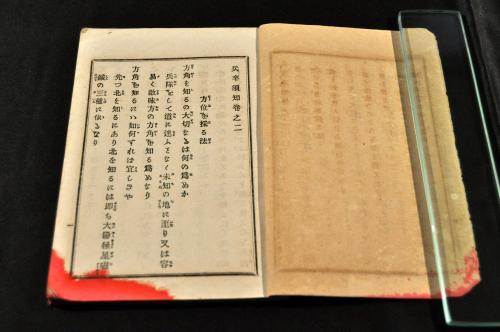 兵卒須知卷之二
方位を探る法
方角を知るの大切なるは何の爲めか
兵隊として道に迷ふことなく未知の地に至り又は容
易く敵味方の方角を知る爲めなり
方角を知るにハ如何すれは宜しきや
先つ北を知るにあり北を知るには即ち大陽極星磁
鍼の三種に依るなり